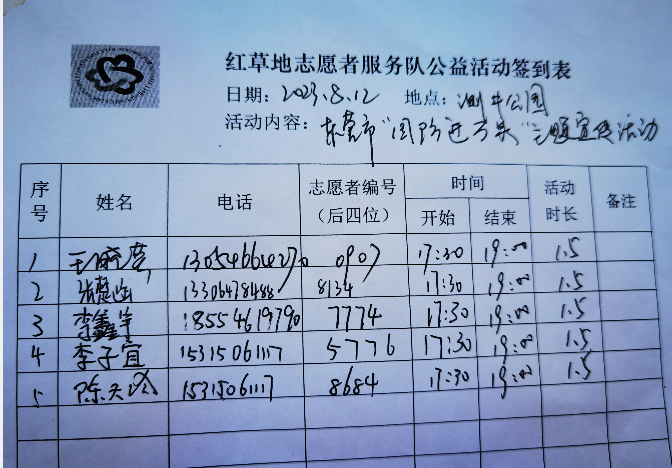 红草地志愿者服务队公益活动签到表
日期：2023.8.12 地点： 公园
活动内容：东营市"国防进万家"主题宣传活动
序号 姓名 电话 志愿者编号（后四位） 时间 开始 结束 活动时长 备注
1 王 13054664270 0907 17:30 19:00 1.5
2 13306478488 8134 17:30 19:00 1.5
3 李鑫 18554619790 7774 17:30 19:00 1.5
4 李子宜 15315061117 5776 17:30 19:00 1.5
5 陈天 15315061117 8684 17:30 19:00 1.5